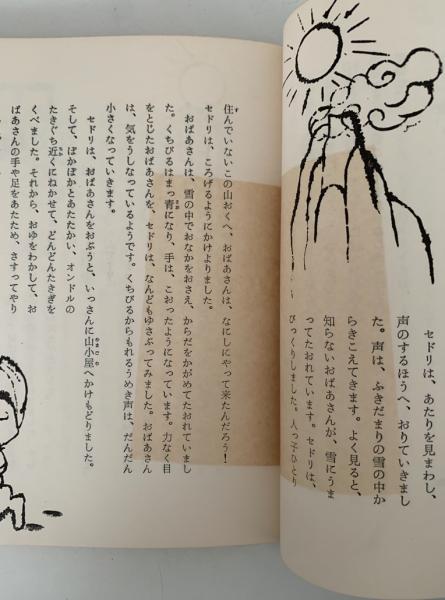 セドリは、あたりを見まわし、
声のするほうへ、おりていきまし
た。声は、ふきだまりの雪の中か
らきこえてきます。よく見ると、
知らないおばあさんが、雪にうま
ってたおれています。セドリは、
びっくりしました。人っ子ひとり
住んでいないこの山おくへ、おばあさんは、なにしにやって来たんだろう！
セドリは、ころげるようにかけよりました。
おばあさんは、雪の中でおなかをおさえ、からだをかがめてたおれていまし
た。くちびるはまっ青になり、手は、こおったようになっています。力なく目
をとじたおばあさんを、セドリは、なんどもゆさぶってみました。おばあさん
は、気をうしなっているようです。くちびるからもれるうめき声は、だんだん
小さくなっていきます。
セドリは、おばあさんをおぶうと、いっさんに山小屋へかけもどりました。
そして、ぽかぽかとあたたかい、オンドルの
たきぐち近くにねかせて、どんどんたきぎを
くべました。それから、おゆをわかして、お
ばあさんの手や足をあたため、さすってやり